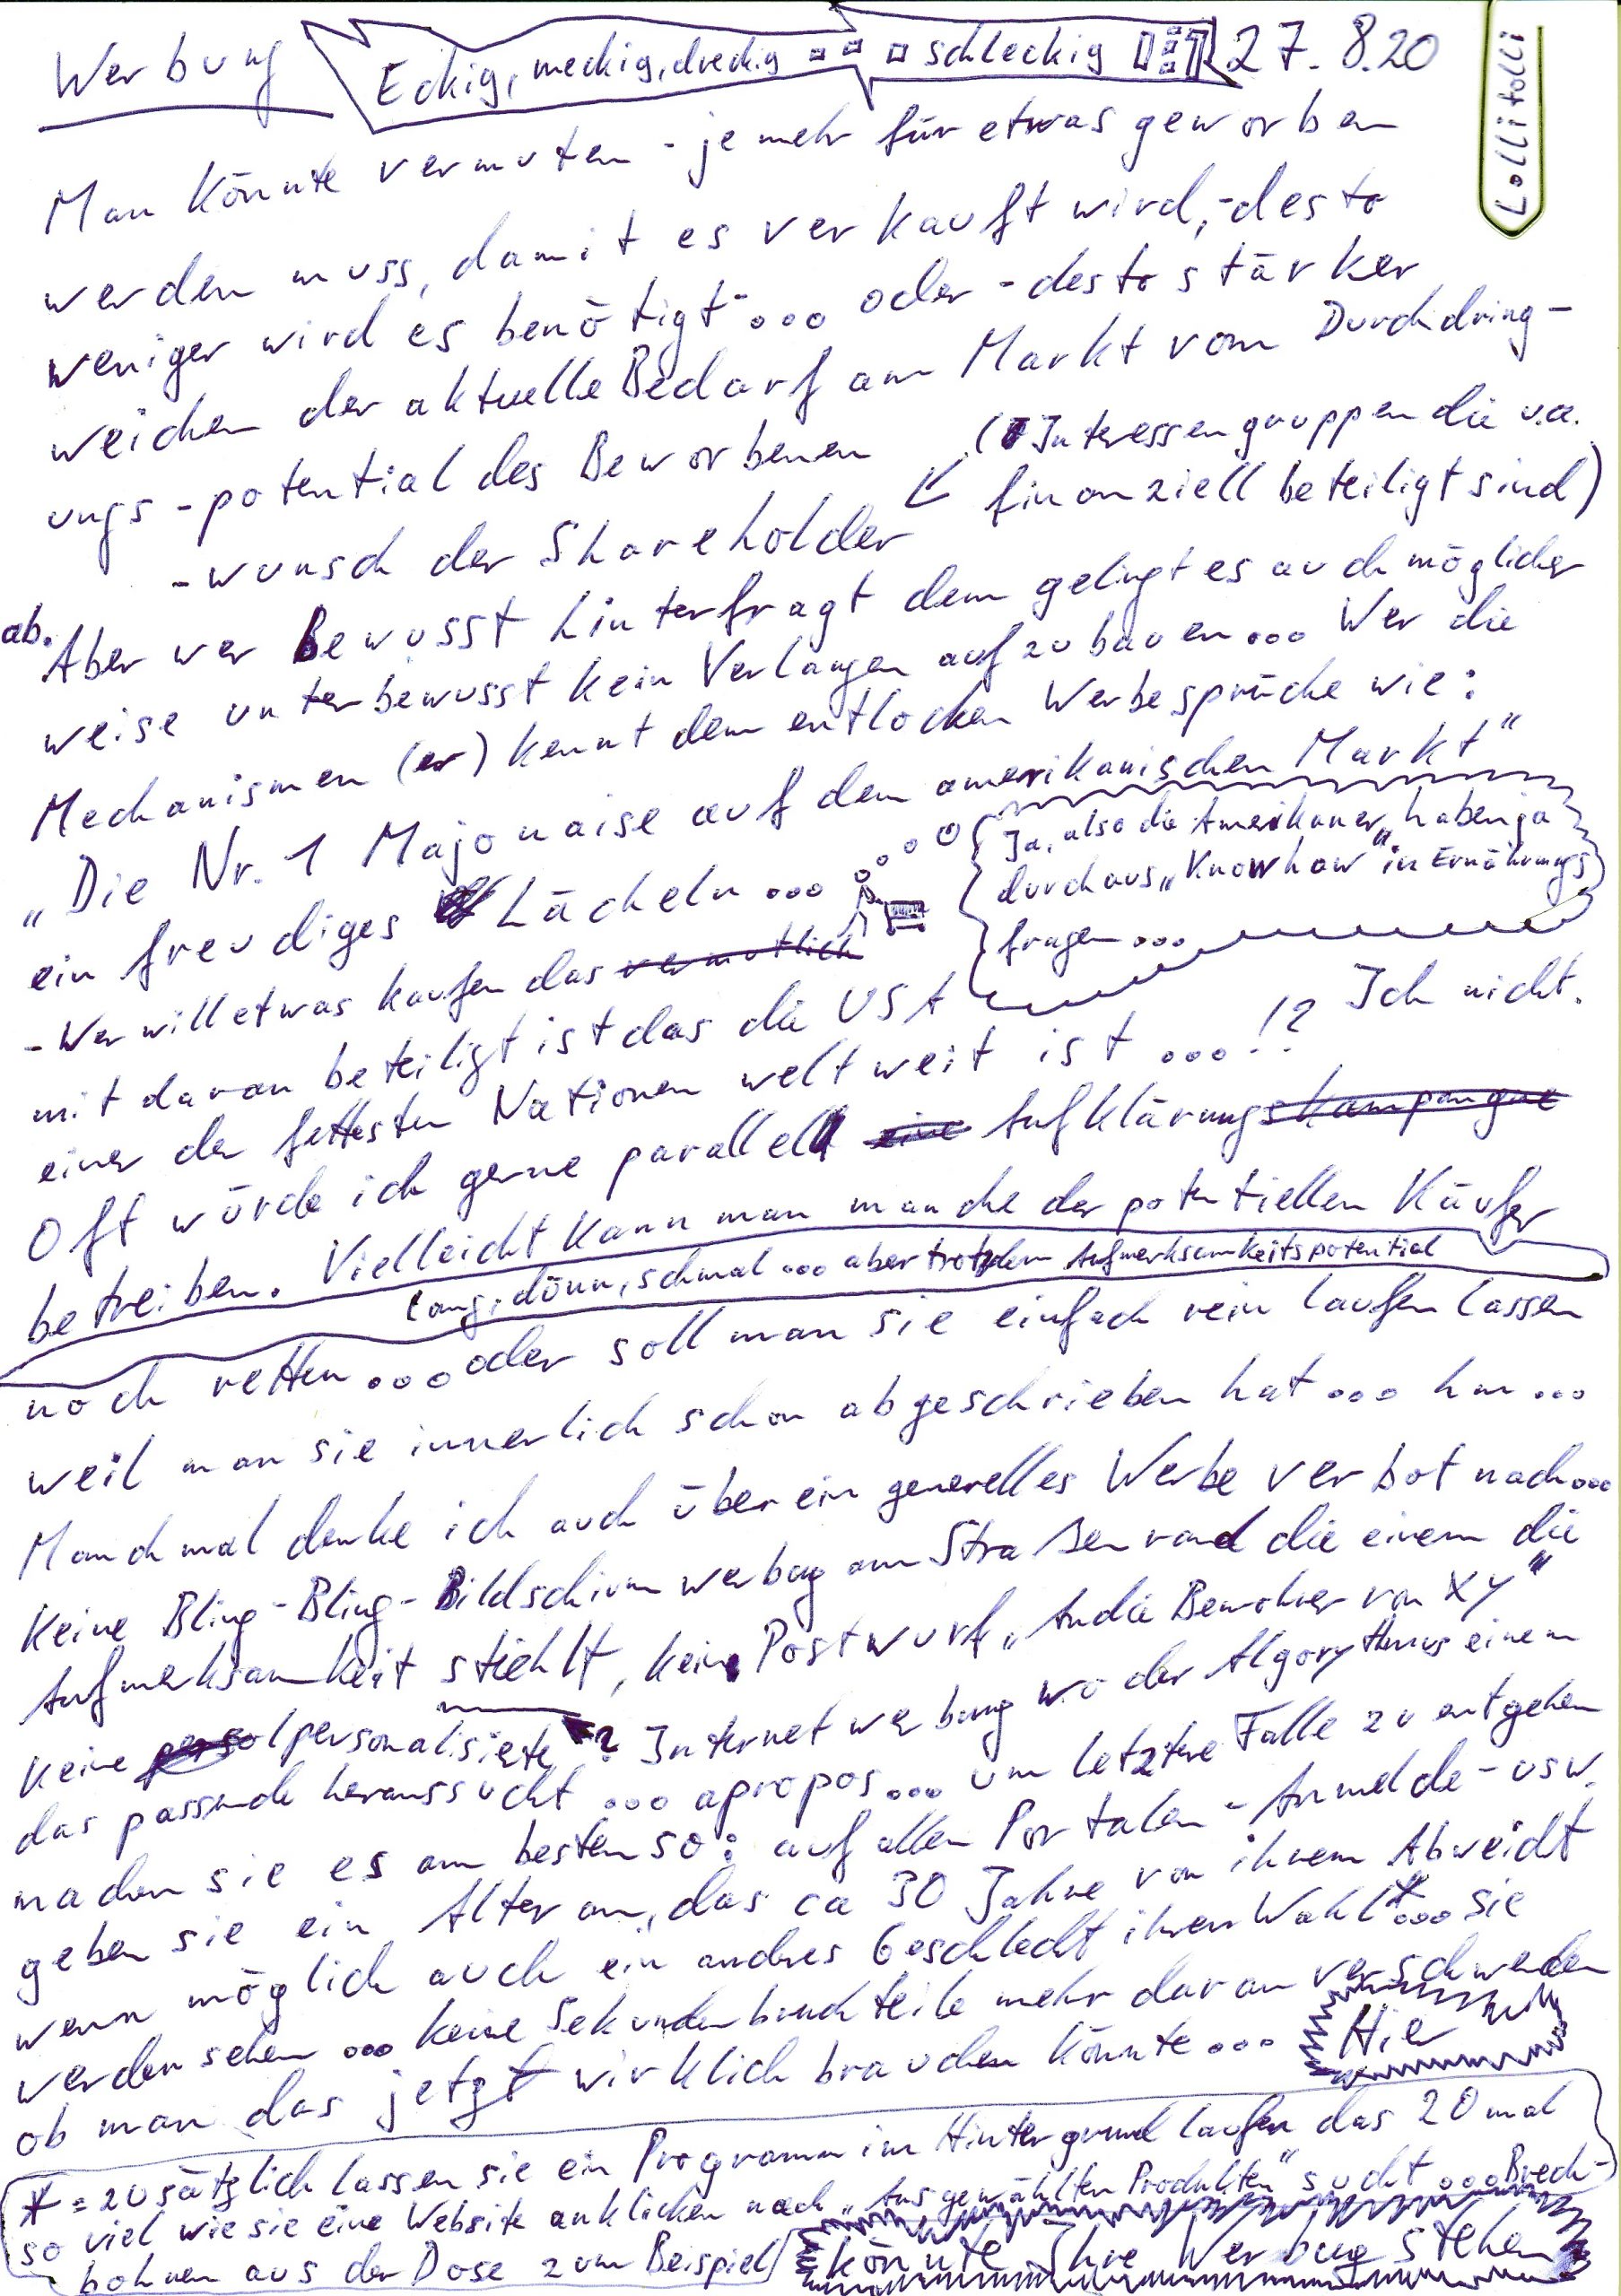 Werbung
Eckig, meckig, dreckig schleckig
27.8.20
Lollitolli
Man könnte vermuten - je mehr für etwas geworben
werden muss, damit es verkauft wird, - desto
weniger wird es benötigt - ... oder - desto stärker
weichen der aktuelle Bedarf am Markt vom Durchdring-
ungs - potential des Beworbenen
- wunsch der Shareholder
(Interessengruppen die u.a.
finanziell beteiligt sind)
ab.
Aber wer Bewusst hinterfragt dem gelingt es auch möglicher
weise unterbewusst kein Verlangen aufzubauen... Wer die
Mechanismen (er)kennt dem entlocken Werbesprüche wie:
„Die Nr. 1 Majonaise auf dem amerikanischen Markt"
ein freudiges Lächeln ...
Ja, also die Amerikaner haben ja
durchaus „Knowhow" in Ernährungs
fragen...
- Wer will etwas kaufen das vermutlich
mit daran beteiligt ist das die USA
einer der fettesten Nationen weltweit ist ...!? Ich nicht.
Oft würde ich gerne parallel eine Aufklärungskampangne
betreiben. Vielleicht kann man manche der potentiellen Käufer
lang, dünn, schmal ... aber trotzdem Aufmerksamkeitspotential
noch retten ... oder soll man sie einfach rein laufen lassen
weil man sie innerlich schon abgeschrieben hat ... hm ...
Manchmal denke ich auch über ein generelles Werbe verbot nach...
Keine Bling-Bling-Bildschirmwerbung am Straßenrand die einem die
Aufmerksamkeit stiehlt, kein Postwurf „An die Bewohner von XY"
keine personalisierte ? Internetwerbung wo der Algorythmus einem
das passende heraussucht ... apropos ... um letztere Falle zu entgehen
machen sie es am besten so: auf allen Portalen - Anmelde - usw.
geben sie ein Alter an, das ca 30 Jahre von ihrem Abweicht
wenn möglich auch ein anderes Geschlecht ihrer Wahl * ... sie
werden sehen ... keine Sekundenbruchteile mehr daran verschwenden
ob man das jetzt wirklich brauchen könnte ...
* = zusätzlich lassen sie ein Programm im Hintergrund laufen das 20 mal
so viel wie sie eine Website anklicken nach „Ausgewählten Produkten" sucht ... Brech-
bohnen aus der Dose zum Beispiel
Hier
könnte Ihre Werbung stehen